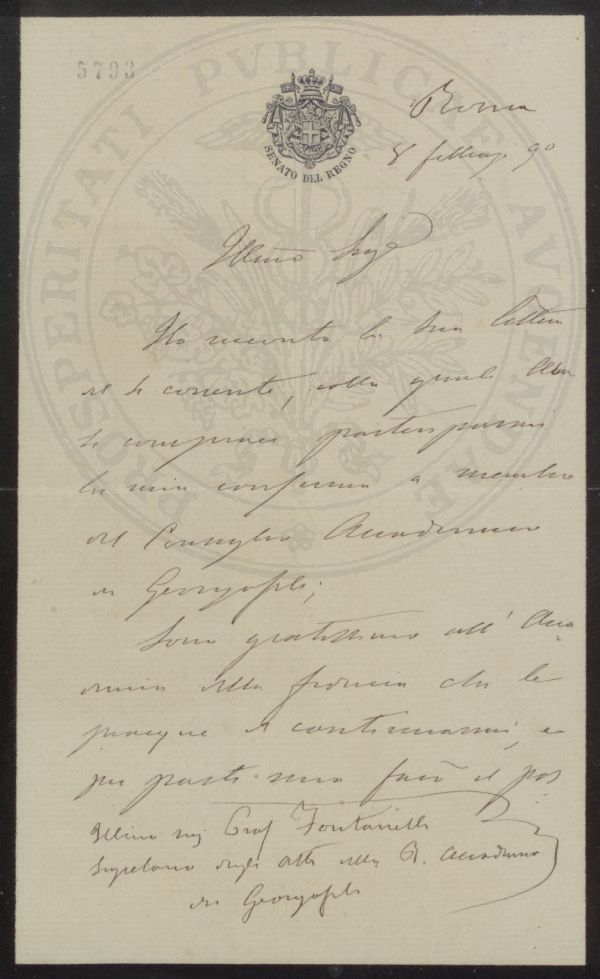 5793
PROSPERITATI PVBLICAE AVGENDAE
SENATO DEL REGNO
Roma
8 febbrajo 90
Illmo Sigre
Ho ricevuto la Sua lettera
del 4 corrente, colla quale Ella
si compiace parteciparmi
la mia conferma a membro
del Consiglio Accademico
dei Georgofili;
Sono gratissimo all' Acca
demia della fiducia che le
piacque di continuarmi, e
per parte mia farò il pos
Illmo Sig Prof Fontanelli
Segretario degli atti della R. Accademia
dei Georgofili